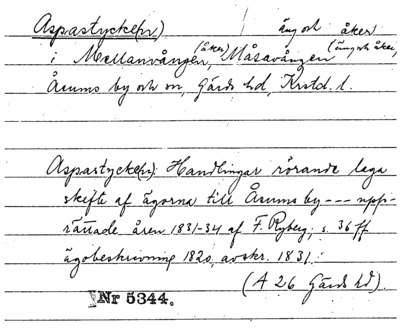 Aspastycke(n)       äng och åker
i Mellanvången (åker), Måsavången (äng och åker)
Årums by och sn, Gärds hd, Krstd. l.
Aspastycke(n): Handlingar rörande laga
skifte af ägorna till Årums by --- upp-
rättade åren 1831-34 af F. Ryberg; s. 36 ff
ägobeskrivning 1820, avskr. 1831.
(A 26 Gärds hd).
Nr 5344.